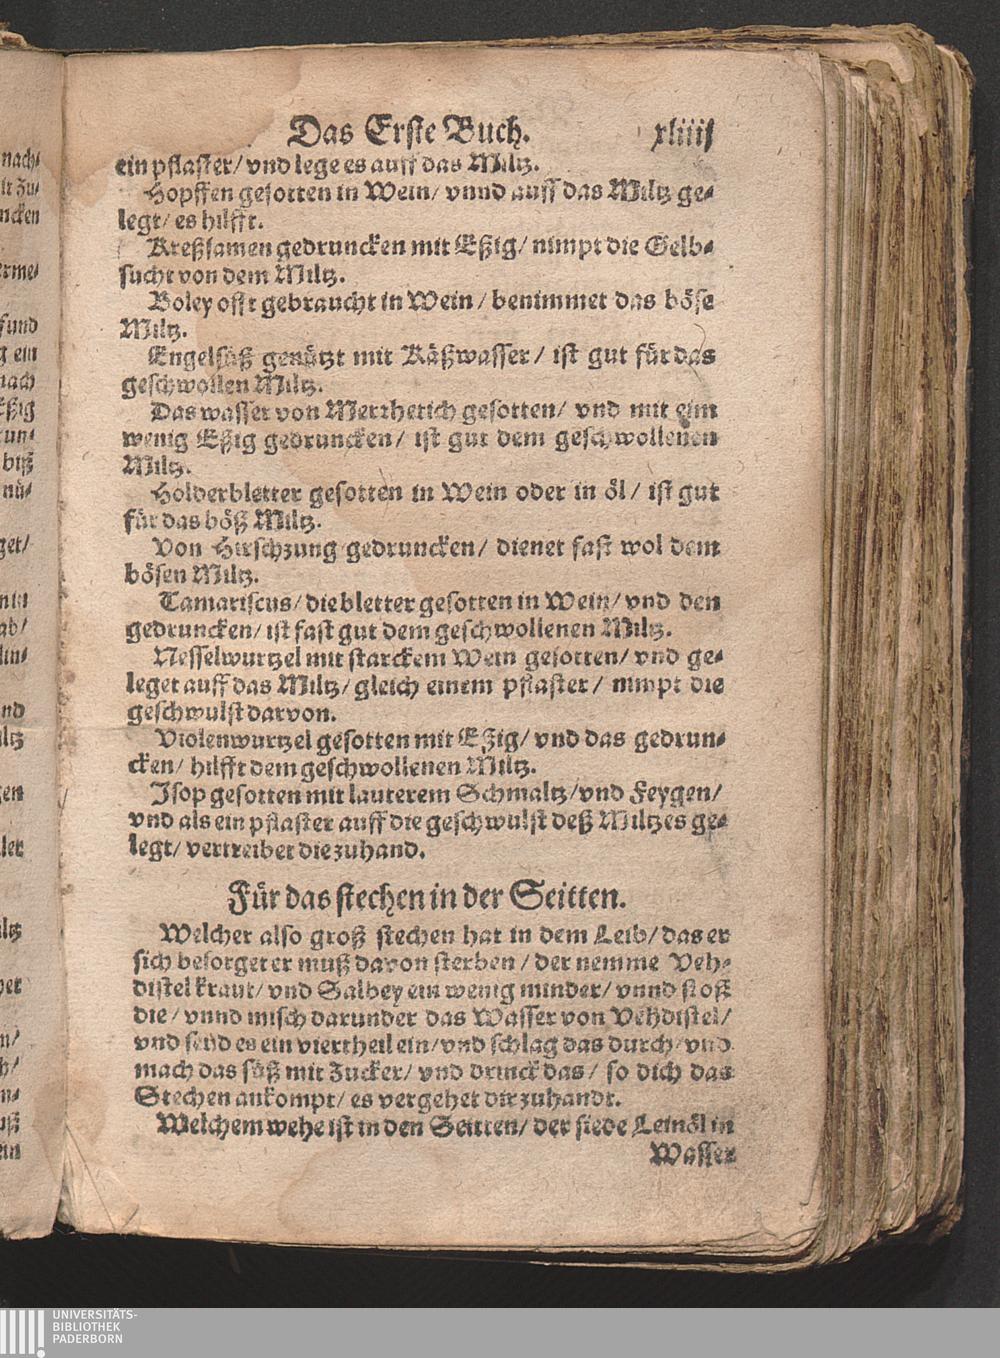 nach⸗
lt zu⸗
ncken
erme⸗
fund
g ein
nach
Eßig
run⸗
biß
nü⸗
get/
mit
ab/
lin⸗
nd
iltz
gen
ler
iltz
her
n/
h/
n⸗
uß
ein
Das Erste Buch. xliiij
ein pflaster/ vnd lege es auff das Miltz.
Hopffen gesotten in Wein/ vnnd auff das Miltz ge⸗
legt/ es hilfft.
Kreßsamen gedruncken mit Eßig/ nimpt die Gelb⸗
sucht von dem Miltz.
Boley offt gebraucht in Wein/ benimmet das böse
Miltz.
Engelsüß genützt mit Käßwasser/ ist gut für das
geschwollen Miltz.
Das wasser von Merrhetich gesotten/ vnd mit eim
wenig Eßig gedruncken/ ist gut dem geschwollenen
Miltz.
Holderbletter gesotten in Wein oder in öl/ ist gut
für das böß Miltz.
Von Hirschzung gedruncken/ dienet fast wol dem
bösen Miltz.
Tamariscus/ die bletter gesotten in Wein/ vnd den
gedruncken/ ist fast gut dem geschwollenen Miltz.
Nesselwurtzel mit starckem Wein gesotten/ vnd ge⸗
leget auff das Miltz/ gleich einem pflaster/ nimpt die
geschwulst darvon.
Violenwurtzel gesotten mit Eßig/ vnd das gedrun⸗
cken/ hilfft dem geschwollenen Miltz.
Isop gesotten mit lauterem Schmaltz/ vnd Feygen/
vnd als ein pflaster auff die geschwulst deß Miltzes ge⸗
legt/ vertreibet die zuhand.
Für das stechen in der Seitten.
Welcher also groß stechen hat in dem Leib/ das er
sich besorget er muß davon sterben/ der nemme Veh⸗
distel kraut/ vnd Salbey ein wenig minder/ vnnd stoß
die/ vnnd misch darunder das Wasser von Vehdistel/
vnd seüd es ein viertheil ein/ vnd schlag das durch/ vnd
mach das süß mit Zucker/ vnd drinck das/ so dich das
Stechen ankompt/ es vergehet dir zuhandt.
Welchem wehe ist in den Seitten/ der siede Leinöl in
Wasser
UNIVERSITÄTS-
BIBLIOTHEK
PADERBORN